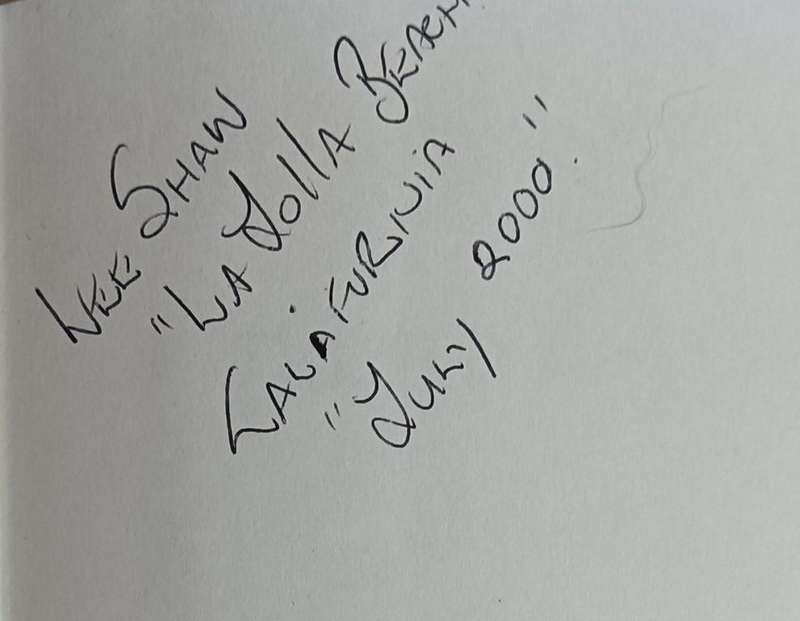 LEE SHAW
"LA JOLLA BEACH"
CALIFURNIA
"JULY 2000."